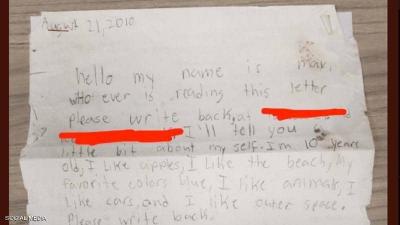 August 21, 2010
hello my name is
who ever is reading this letter
please write back, at
I'll tell you
little bit about my self. Im 10 years
old, I like apples, I like the beach, My
favorite colors blue, I like animals, I
like cars, and I like outer space.
Please write back.
SOCIAL MEDIA